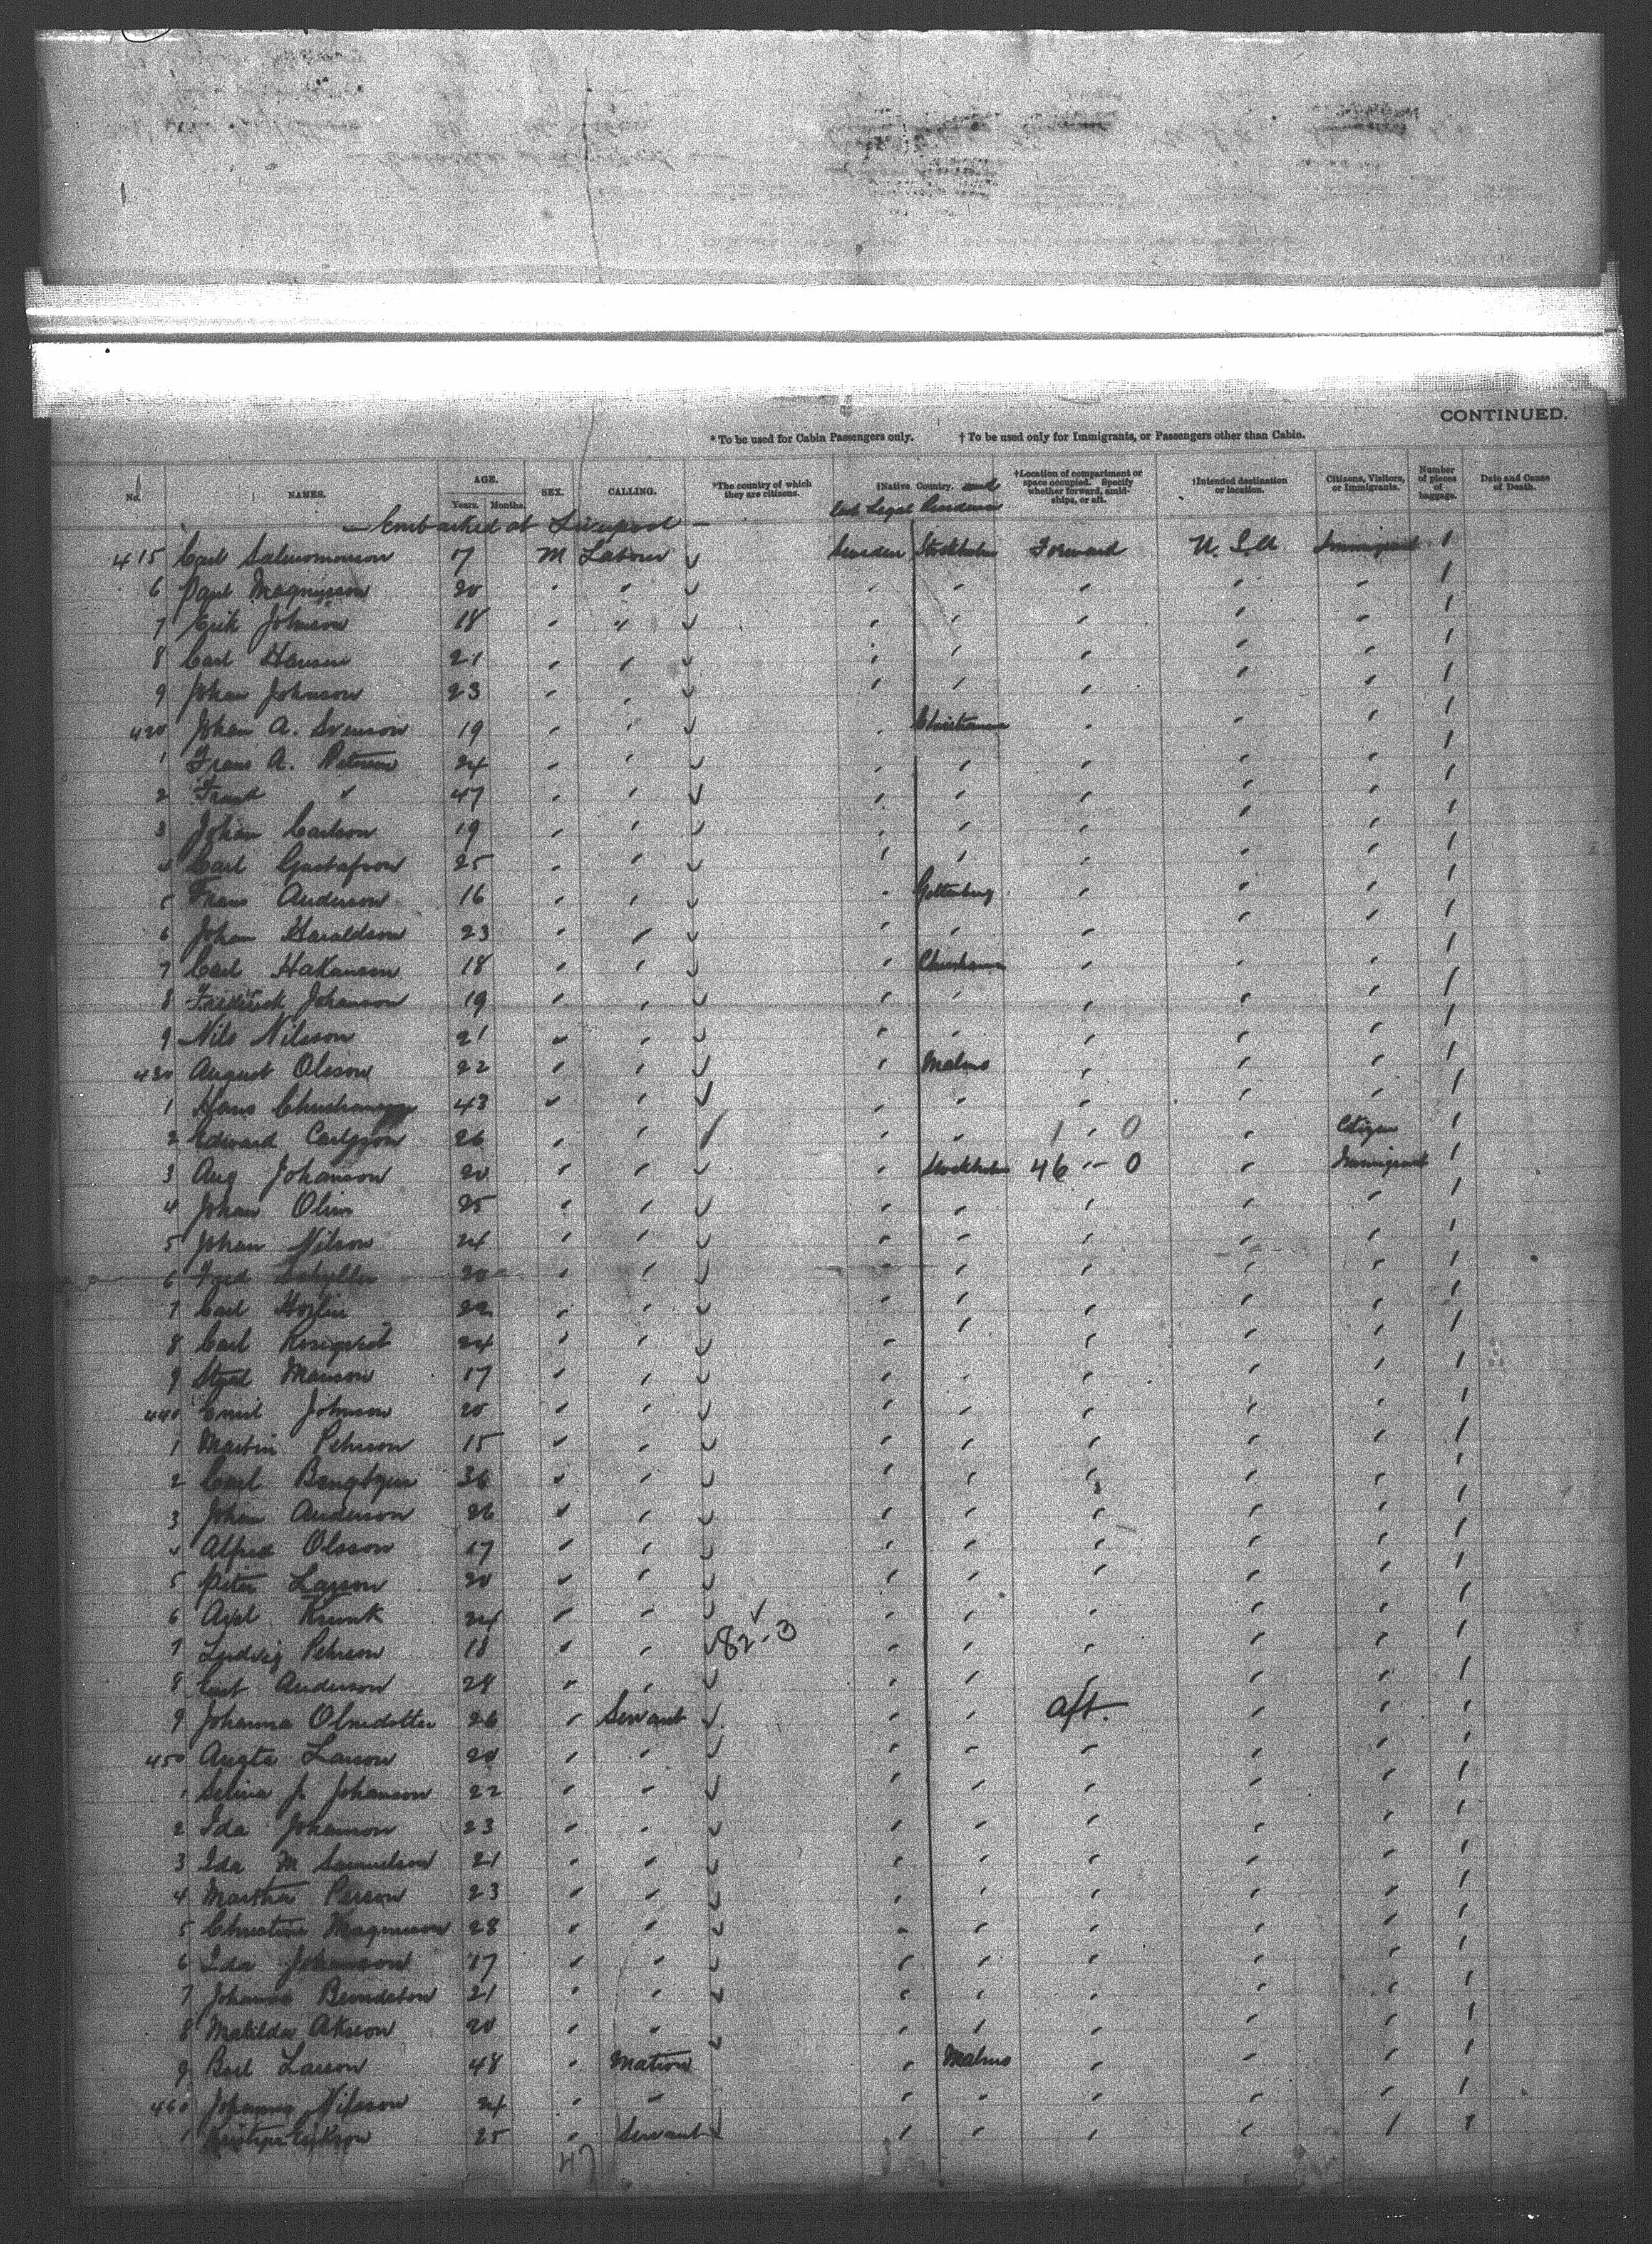 CONTINUED.
* To be used for Cabin Passengers only. † To be used only for Immigrants, or Passengers other than Cabin.
No. NAMES. AGE. Years. Months. SEX. CALLING. *The country of which they are citizens. †Native Country. and Last Legal Residence †Location of compartment or space occupied. Specify whether forward, amidships, or aft. †Intended destination or location. Citizens, Visitors, or Immigrants. Number of pieces of baggage. Date and Cause of Death.
— Embarked at Liverpool —
415 Carl Salmomonson 17 M Labour Sweden Stockholm Forward U. S. A Immigrant 1
6 Paul Magnusson 20 " " " " " " " 1
7 Erik Johnson 18 " " " " " " " 1
8 Carl Hansen 21 " " " " " " 1
9 Johan Johnson 23 " " " " " " " 1
420 Johan A. Svenson 19 " " " Christiania " " " 1
1 Frans A. Peterson 24 " " " " " " " 1
2 Frank " 47 " " " " " " " 1
3 Johan Carlson 19 " " " " " " " 1
4 Carl Gustafson 25 " " " " " " " 1
5 Frans Anderson 16 " " " Gottenburg " " " 1
6 Johan Haraldson 23 " " " " " " " 1
7 Carl Hakanson 18 " " " Christiania " " " 1
8 Frederick Johanson 19 " " " " " " " 1
9 Nils Nilsson 21 " " " " " " " 1
430 August Olsson 22 " " " Malmo " " " 1
1 Hans 43 " " " " " " " 1
2 Edward Carlsson 26 " " " " 1 " 0 " Citizen 1
3 Aug Johanson 20 " " " Stockholm 46 " 0 " Immigrant 1
4 Johan Olin 25 " " " " " " " 1
5 Johan Nilson 24 " " " " " " " 1
6 Fred 20 " " " " " " 1
7 Carl 22 " " " " " " " 1
8 Carl Rosiqvist 24 " " " " " " " 1
9 Manson 17 " " " " " " " 1
440 Emil Johnson 20 " " " " " " " 1
1 Martin Pehrson 15 " " " " " " " 1
2 Carl 36 " " " " " " " 1
3 Johan Anderson 26 " " " " " " " 1
4 Alfred Olsson 17 " " " " " " " 1
5 Peter Larson 20 " " " " " " " 1
6 Axel 24 " " " " " " " 1
7 Ludvig Pehrson 18 " " 82-3 " " " " " 1
8 Anderson 28 " " " " " " " 1
9 Johanna 26 " Servant " " aft. " " 1
450 Augta Larson 20 " " " " " " " 1
1 Selina J. Johanson 22 " " " " " " " 1
2 Ida Johanson 23 " " " " " " " 1
3 Ida M Samuelson 21 " " " " " " " 1
4 Martha Person 23 " " " " " " " 1
5 Christine Magnusson 28 " " " " " " " 1
6 Ida Johanson 17 " " " " " " " 1
7 Johanna 21 " " " " " " " 1
8 Matilda Akeson 20 " " " " " " " 1
9 Larson 48 " Matron " Malmo " " " 1
460 Johanna Nilsson 24 " " " " " " " 1
1 25 " Servant " " " " " 1
47